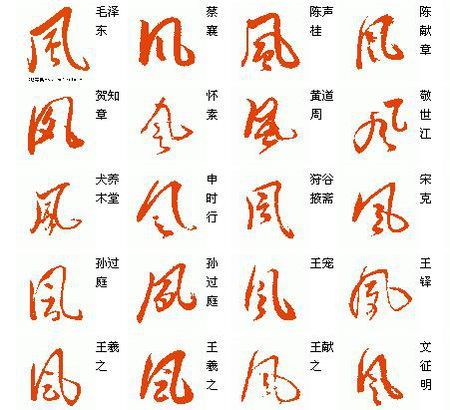 風 毛泽东
風 蔡襄
風 陈声桂
風 陈献章
風 贺知章
風 怀素
風 黄道周
風 敬世江
風 犬养木堂
風 申时行
風 狩谷掖斋
風 宋克
風 孙过庭
風 孙过庭
風 王宠
風 王铎
風 王羲之
風 王羲之
風 王献之
風 文征明